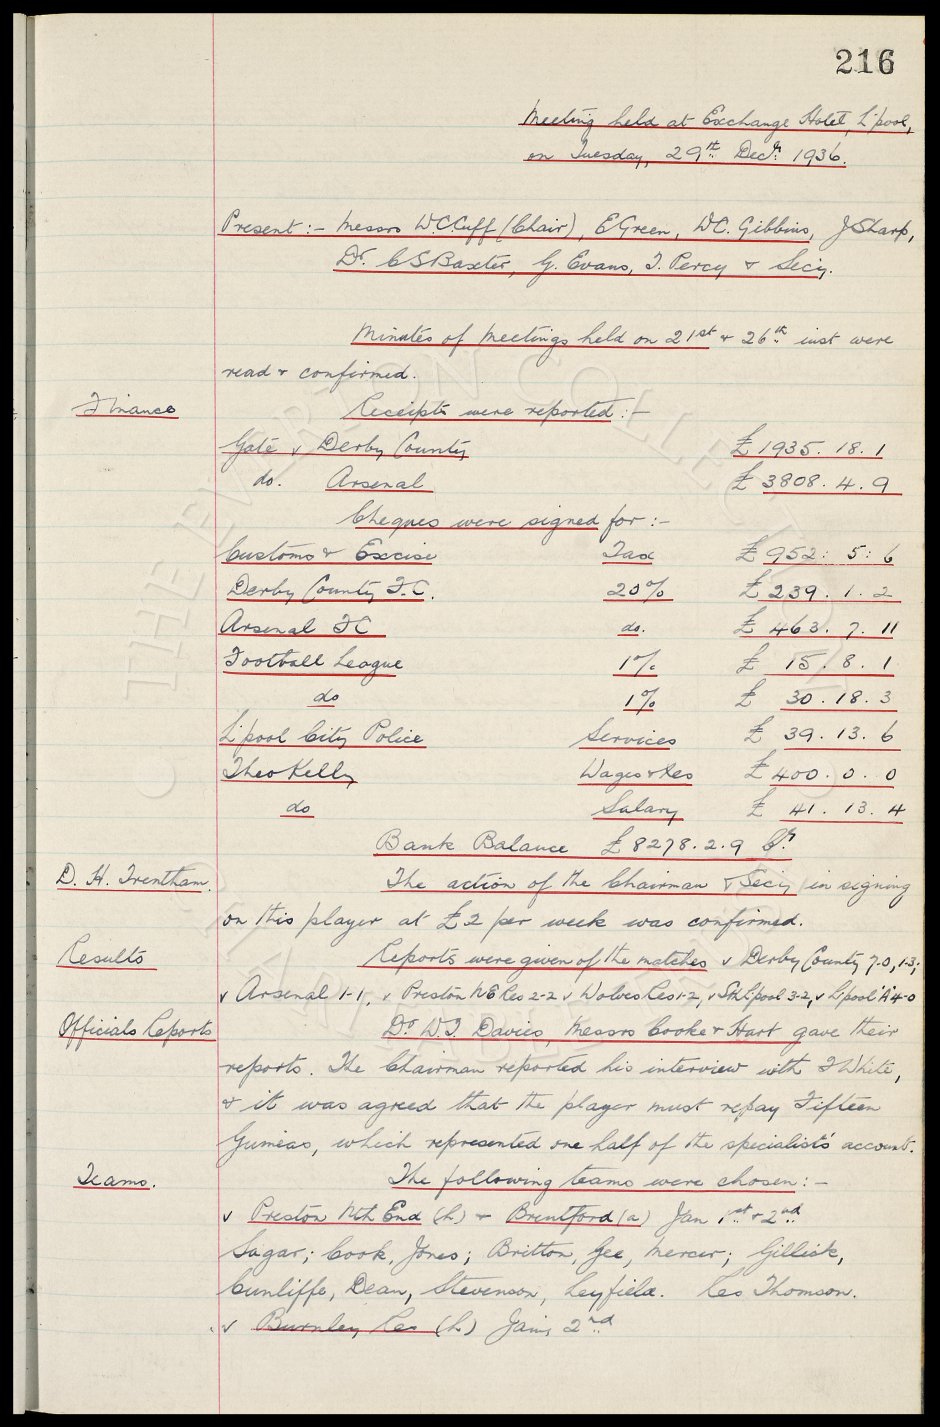 216
Meeting held at Exchange Hotel, L'pool,
on Tuesday, 29th Decr. 1936.
Present:- Messrs W.C. Cuff (Chair), E Green, W.C. Gibbins, J Sharp,
Dr. C S Baxter, G. Evans, T. Percy & Secy.
Minutes of Meetings held on 21st & 26th inst were
read & confirmed.
Finance Receipts were reported:-
Gate v Derby County £1935. 18. 1
do. Arsenal £3808. 4. 9
Cheques were signed for:-
Customs & Excise Tax £952: 5: 6
Derby County F.C. 20% £239. 1. 2
Arsenal FC do. £463. 7. 11
Football League 1% £ 15. 8. 1
do 1% £ 30. 18. 3
L'pool City Police Services £ 39. 13. 6
Theo Kelly Wages &c £400. 0. 0
do Salary £ 41. 13. 4
Bank Balance £8278. 2. 9 Cr.
D. H. Trentham. The action of the Chairman & Secy in signing
on this player at £2 per week was confirmed.
Results Reports were given of the matches v Derby County 7-0, 1-3;
v Arsenal 1-1, v Preston NE Res 2-2 v Wolves Res 1-2, v Sth L'pool 3-2, v L'pool 'A' 4-0
Officials Reports Dr. W.J. Davies, Messrs Cooke & Hart gave their
reports. The Chairman reported his interview with T White,
& it was agreed that the player must repay Fifteen
Guineas, which represented one half of the specialists' account.
Teams. The following teams were chosen:-
v Preston Nth End (h) & Brentford (a) Jan 1st & 2nd
Sagar; Cook, Jones; Britton, Gee, Mercer; Gillick,
Cunliffe, Dean, Stevenson, Leyfield. Res Thomson.
v Burnley Res (h) Jany 2nd
THE EVERTON COLLECTION
CHARITABLE TRUST